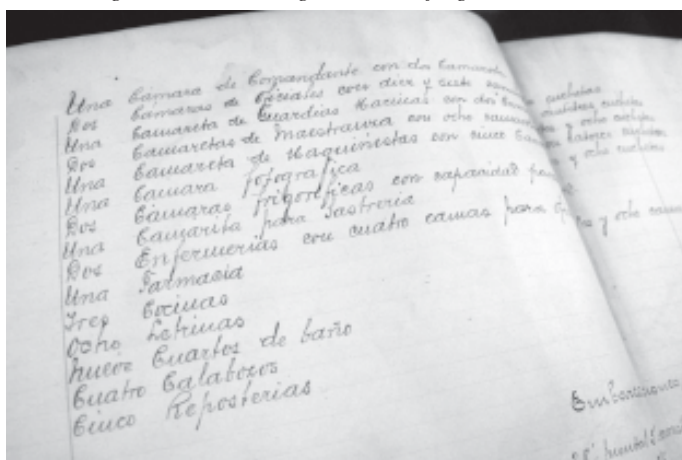 Una Cámara de Comandante con dos Camarotes
Dos Cámaras de Oficiales con diez y siete
Una Camareta de Guardias Marinas con dos cuchetas
Dos Camaretas de Maestranza con ocho y ocho cuchetas
Una Camareta de Maquinistas con cinco catorce cuchetas
Una Camara fotografica y ocho cuchetas
Dos Cámaras frigorificas con capacidad para
Una Camarita para Sastreria
Dos Enfermerias con cuatro camas para y ocho
Una Farmacia
Tres Cocinas
Ocho Letrinas
nueve Cuartos de baño
Cuatro Calabozos
Cinco Reposterias
Embarcaciones